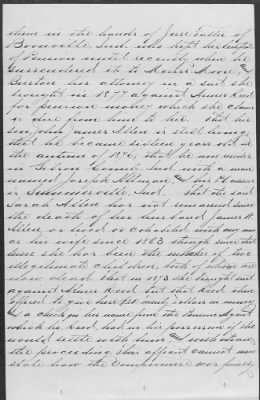 them in the hands of Jesse Fuller of
Boonville, Ind. who kept her certificate
of Pension until recently when he
surrendered it to Morris Moore &
Burton her attorney in a suit she
brought in 1877 against Abner Reed
for pension money which she claims
is due from him to her. That her
son John James Allen is still living,
that he became sixteen years old in
the autumn of 1876, that he now resides
in County, Ind. with a man
named Joseph and his P.O. address
is Ind. That the said
Sarah Allen has not remarried since
the death of her husband James H.
Allen, or lived or cohabited with any man
as his wife since 1863 though since that
time she has been the mother of two
illegitimate children, both of whom are
now dead. That in 1873 she brought suit
against Abner Reed but that Reed then
offered to give her dollars in money
& a check in her name from the Pension Agent
which he, Reed, had in his possession if she
would settle with him and withdraw
the proceeding. This affiant cannot now
state how the compromise was finally